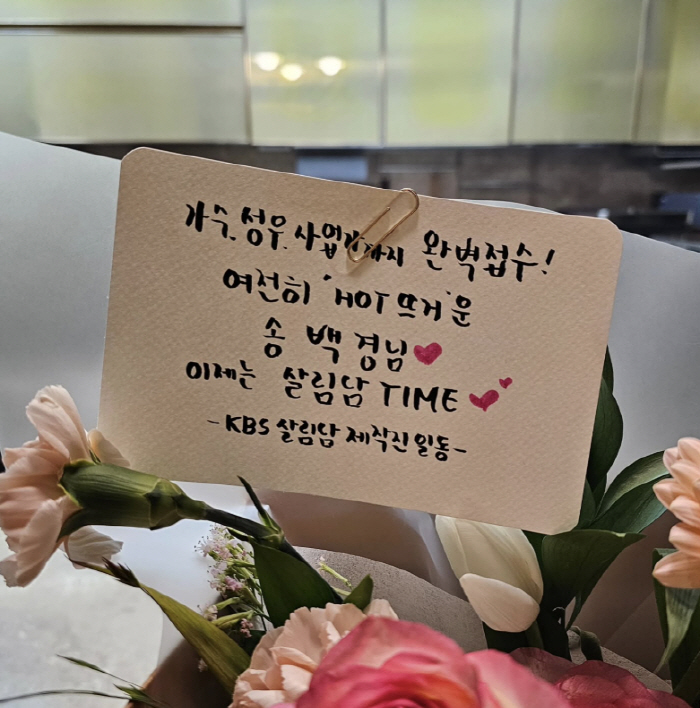 가수.성우.사업가까지 완벽접수!
여전히 'HOT뜨거'운
송백경님
이제는 살림남 TIME
-KBS 살림남 제작진 일동-